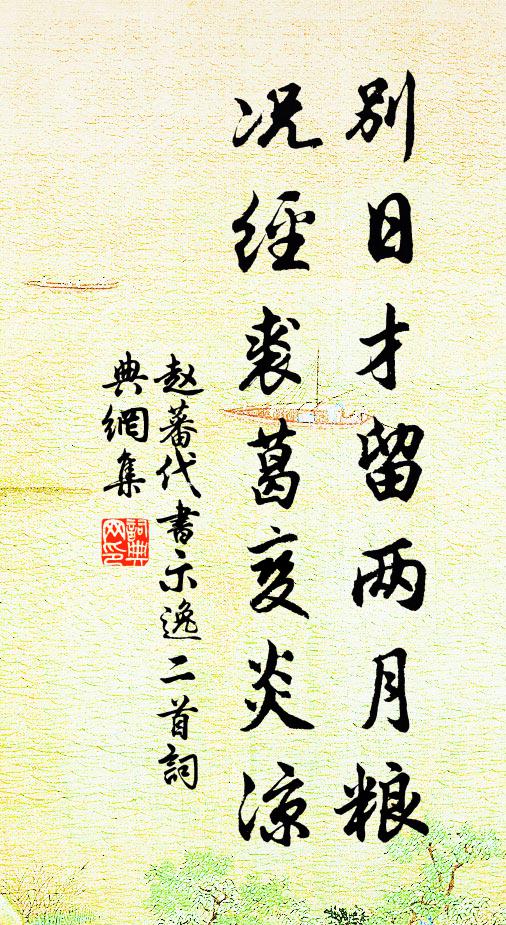 别日才留两月粮
况经裘葛变炎凉
赵蕃代书示逸二首词
典網集
詞典
网印